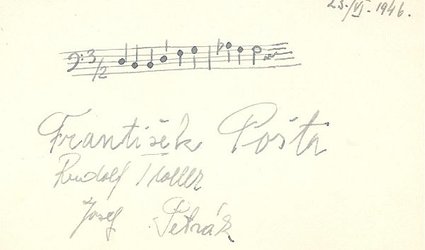 23./VI. 1946.
3/2
František Pošta
Rudolf
Josef Petrák